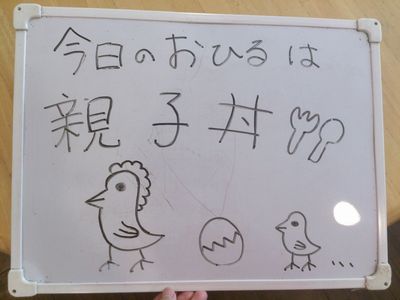 今日のおひるは
親子丼
...